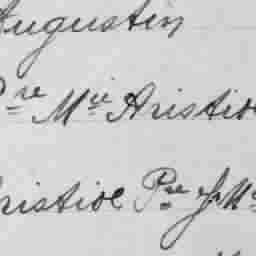 Augustin
Pre Mie Aristide
Aristide Pre Jn Me